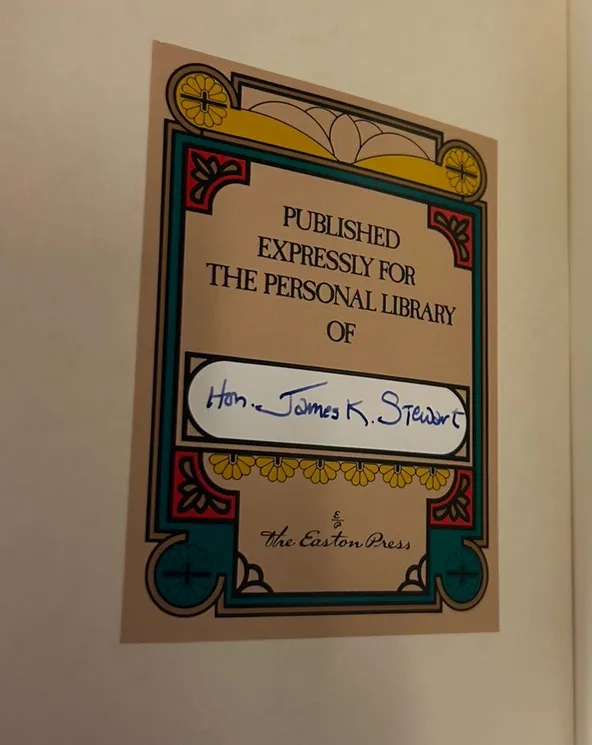 PUBLISHED
EXPRESSLY FOR
THE PERSONAL LIBRARY
OF
Hon. James K. Stewart
E
P
the Easton Press